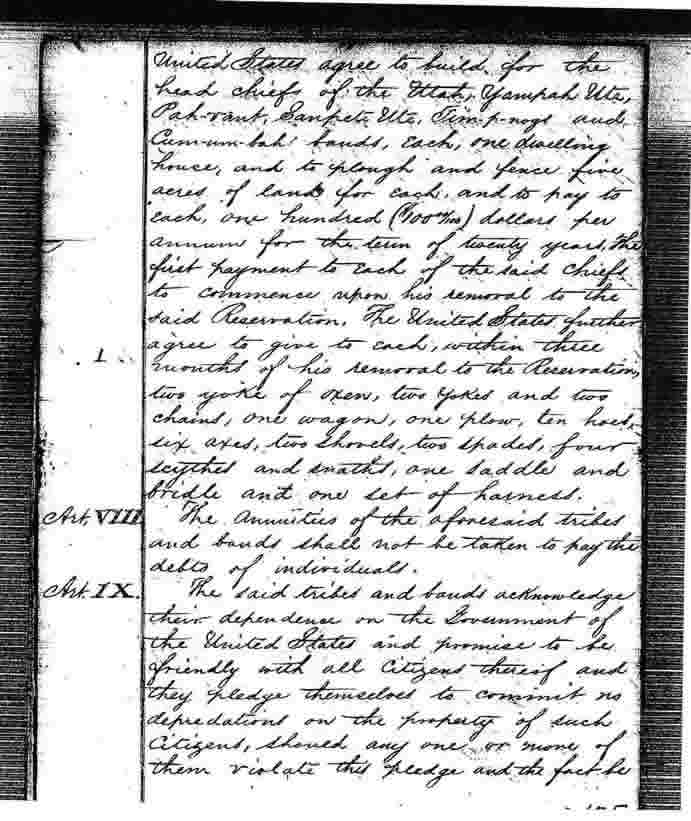 United States agree to build for the
head chiefs of the Utah, Yampah Ute,
Pah-vant, Sanpete Ute, Tim-p-nogs and
Cum-um-bah bands, each, one dwelling
house, and to plough and fence five
acres of land for each, and to pay to
each, one hundred ($100 00/100) dollars per
annum for the term of twenty years, the
first payment to each of the said chiefs
to commence upon his removal to the
said Reservation. The United States further
agree to give to each, within three
months of his removal to the Reservation,
two yoke of oxen, two yokes and two
chains, one wagon, one plow, ten hoes,
six axes, two shovels, two spades, four
scythes and snaths, one saddle and
bridle and one set of harness.
Art. VIII The Annuities of the aforesaid tribes
and bands shall not be taken to pay the
debts of individuals.
Art. IX. The said tribes and bands acknowledge
their dependence on the Government of
the United States and promise to be
friendly with all Citizens thereof and
they pledge themselves to commit no
depredations on the property of such
Citizens, should any one or more of
them violate this pledge and the fact be